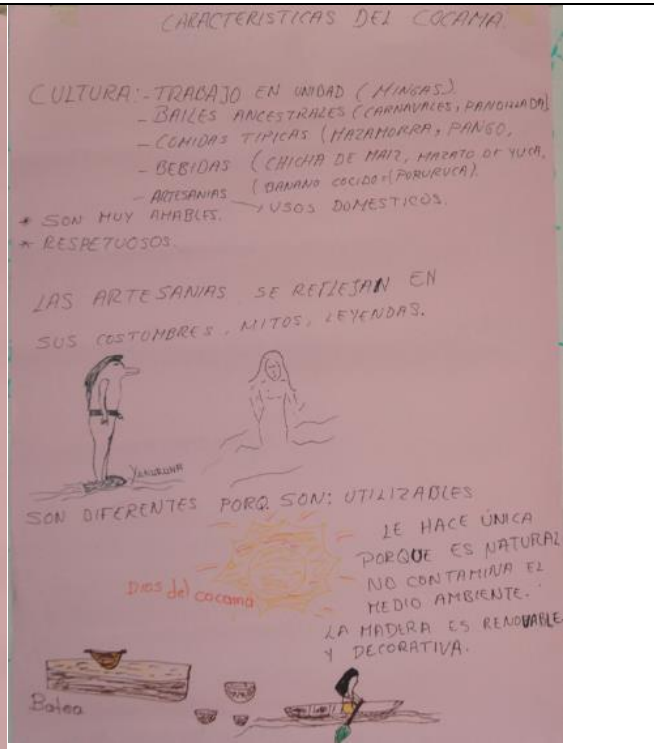 CARACTERISTICAS DEL COCAMA.
CULTURA:- TRABAJO EN UNIDAD (MINGAS).
- BAILES ANCESTRALES (CARNAVALES, PANDILLADA)
- COMIDAS TIPICAS (MAZAMORRA, PANGO,
- BEBIDAS (CHICHA DE MAIZ, MAZATO DE YUCA,
- ARTESANIAS (BANANO COCIDO (PORURUCA).
* SON MUY AMABLES. → USOS DOMESTICOS.
* RESPETUOSOS.
LAS ARTESANIAS SE REFLEJAN EN
SUS COSTUMBRES, MITOS, LEYENDAS.
YAKURUNA
SON DIFERENTES PORQ. SON: UTILIZABLES
LE HACE ÚNICA
PORQUE ES NATURAL
NO CONTAMINA EL
MEDIO AMBIENTE.
Dios del cocama
LA MADERA ES RENOVABLE
Y DECORATIVA.
Batea